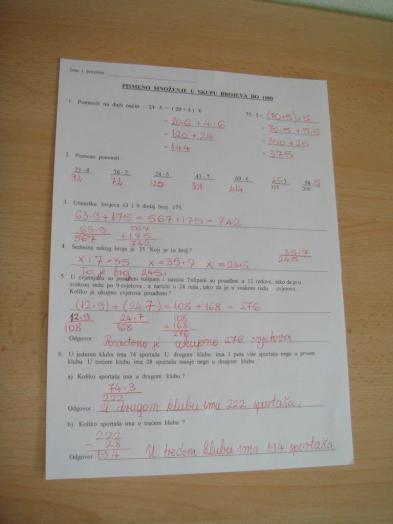 Ime i prezime
PISMENO MNOŽENJE U SKUPU BROJEVA DO 1000
1. Pomnoži na duži način : 24 · 6 = ( 20 + 4 ) · 6 75 · 5 = (70+5)·5
= 20·6 + 4·6 = 70·5 + 5·5
= 120 + 24 = 350 + 25
= 144 = 375
2. Pismeno pomnoži :
36 · 2
92 72
3. Umnošku brojeva 63 i 9 dodaj broj 175.
63·9 + 175 = 567 + 175 = 742
63·9 567
567 + 175
742
4 Sedmina nekog broja je 35. Koji je to broj ?
x : 7 = 35 x = 35·7 x = 245 35·7
245
To je broj 245.
5. U cvjetnjaku su posađeni tulipani i narcisi. Tulipani su posađeni u 12 redova, tako da je u
svakom redu po 9 cvjetova, a narcisi u 24 reda, tako da je u svakom redu cvjetova.
Koliko je ukupno cvjetova posađeno ?
(12·9) + (24·7) = 108 + 168 = 276
12·9 24·7 108
108 168 + 168
276
Odgovor : Posađeno je ukupno 276 cvjetova
6. U jednom klubu ima 74 sportaša. U drugom klubu ima 3 puta više sportaša nego u prvom
klubu. U trećem klubu ima 28 sportaša manje nego u drugom klubu.
a) Koliko sportaša ima u drugom klubu ?
74·3
222
Odgovor : U drugom klubu ima 222 sportaša.
b) Koliko sportaša ima u trećem klubu ?
222
- 28
194
Odgovor : U trećem klubu ima 194 sportaša